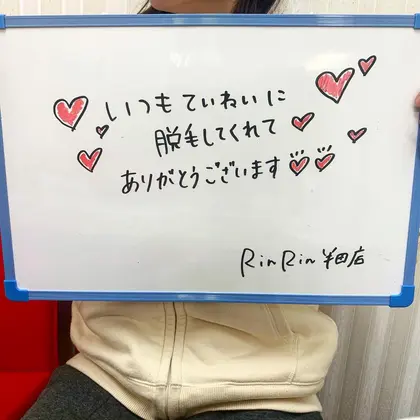 いつもていねいに
脱毛してくれて
ありがとうございます
RinRin 半田店